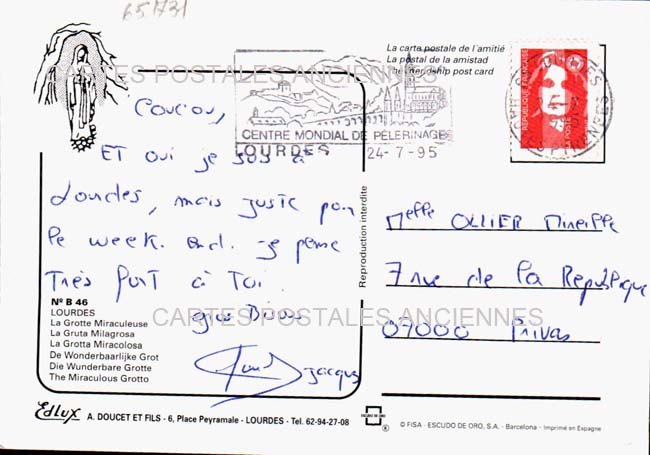 651731
La carte postale de l'amitié
La postal de la amistad
The friendship post card
CARTES POSTALES ANCIENNES
REPUBLIQUE FRANÇAISE
LA POSTE
CENTRE MONDIAL DE PÈLERINAGE
LOURDES 24-7-95
Coucou,
ET oui je suis à
Lourdes, mais juste pour
le week. end. je pense
Très fort à Toi.
gros Bisous
Jacques
Melle OLLIER Mireille
7 rue de la République
07000 Privas
Reproduction interdite
Nº B 46
LOURDES
La Grotte Miraculeuse
La Gruta Milagrosa
La Grotta Miracolosa
De Wonderbaarlijke Grot
Die Wunderbare Grotte
The Miraculous Grotto
CARTES POSTALES ANCIENNES
Edlux A. DOUCET ET FILS - 6, Place Peyramale - LOURDES - Tel. 62-94-27-08
ESCUDO DE ORO
® © FISA - ESCUDO DE ORO, S.A. - Barcelona - Imprimé en Espagne